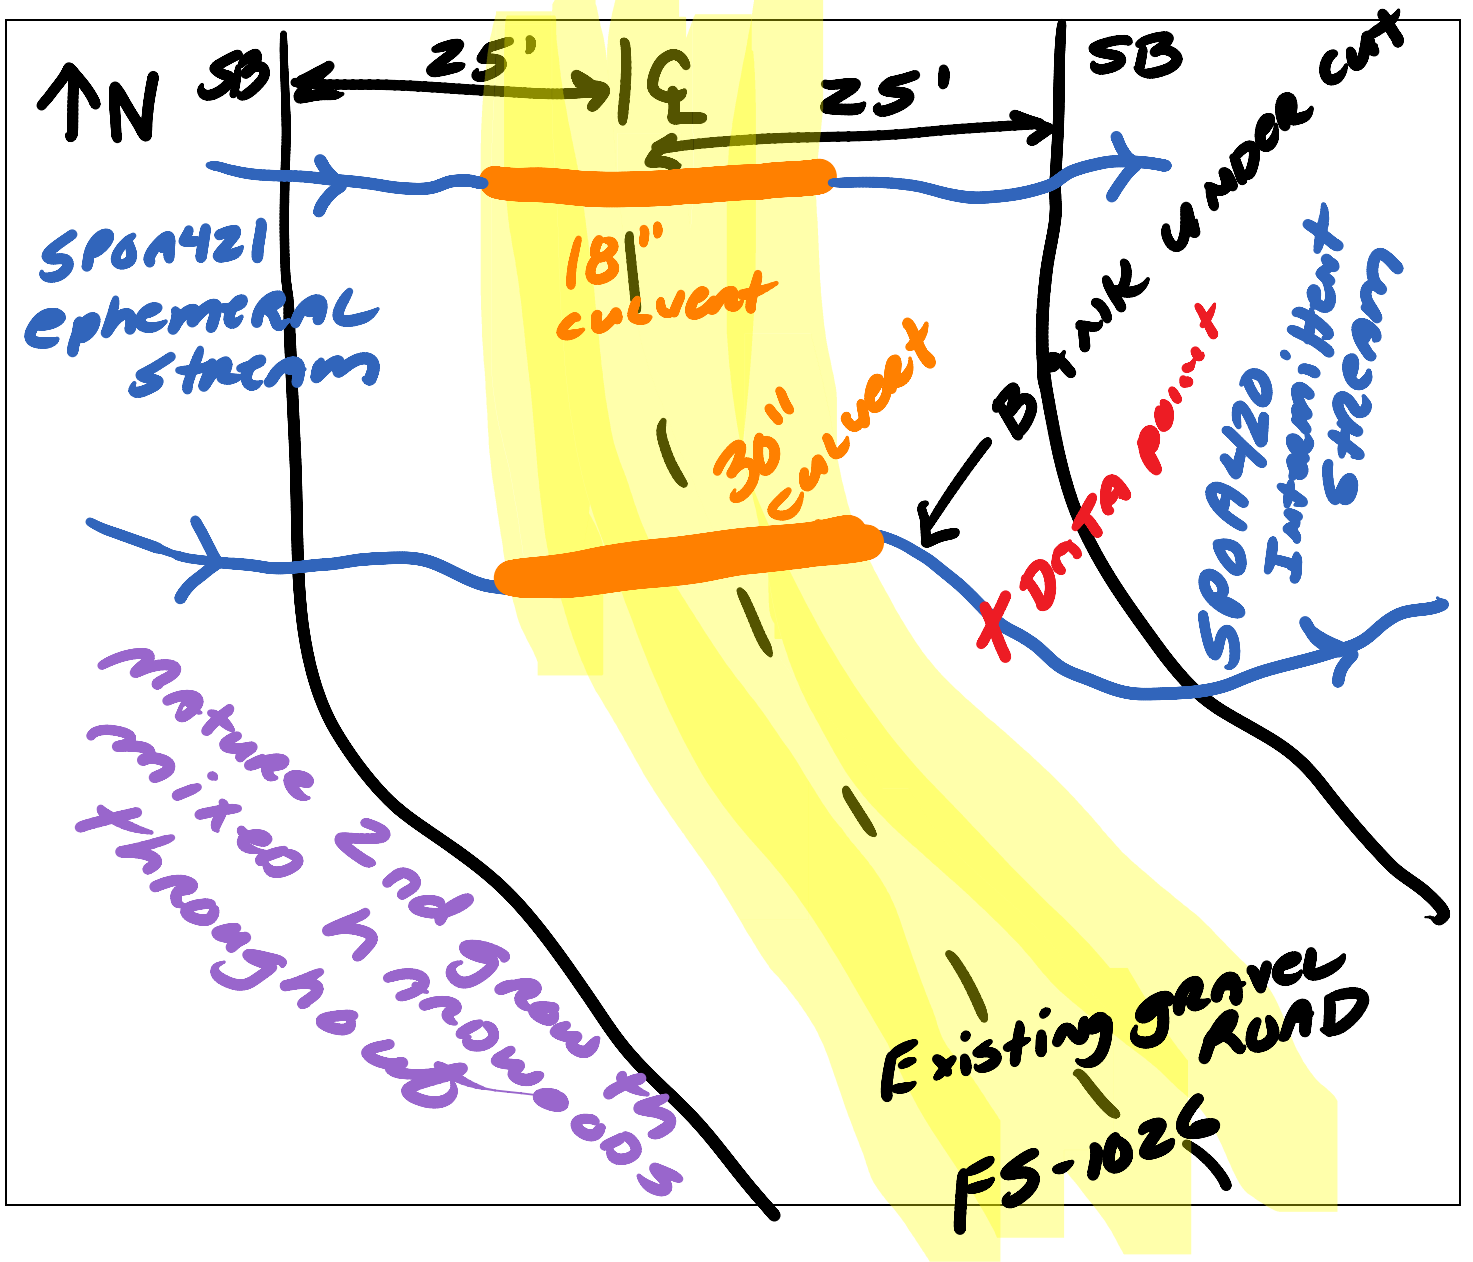 N
SB
25'
CL
25'
SB
SPOA421
ephemeral
stream
18"
culvert
30"
culvert
BANK UNDER cut
DATA point
SPOA420
Intermittent
Stream
mature 2nd growth
mixed hardwoods
throughout
Existing gravel
ROAD
FS-1026